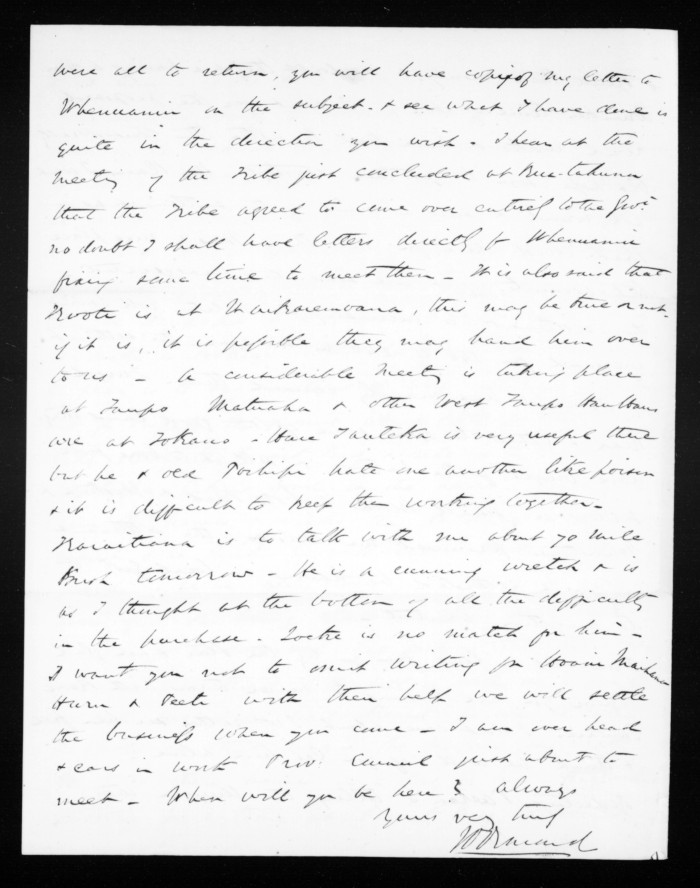 were all to return, you will have copy of my letter to
Whenuanui on the subject. & see what I have done is
quite in the direction you wish. I hear at the
Meeting of the Tribe just concluded at Rua-tahuna
that the Tribe agreed to come over entirely to the Govt
no doubt I shall have letters directly fr Whenuanui
fixing some time to meet them - It is also said that
Kooti is at Waikaremoana, this may be true or not.
if it is, it is possible they may hand him over
to us - A considerable Meeting is taking place
at Taupo Matuaha & other West Taupo Hau Haus
are at Tokano - Hare Tauteka is very useful there
but he & old Poihipi hate one another like poison
& it is difficult to keep them working together -
Karaitiana is to talk with me about 70 Mile
Bush tomorrow - He is a cunning wretch & is
as I thought at the bottom of all the difficulty
in the purchase - Locke is no match for him -
I want you not to omit writing for Hoani
Huru & Peeti with their help we will settle
the business when you come - I am over head
& ears in work Prov. Council just about to
meet - When will you be here? always
yours very truly
JD Ormond